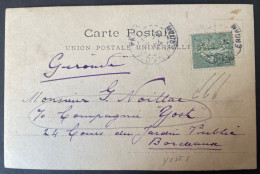 Carte Postale
UNION POSTALE UNIVERSELLE
Gironde
Monsieur G. Noillac
70 Compagnie Gosk
24 Cours du Jardin Public
Bordeaux